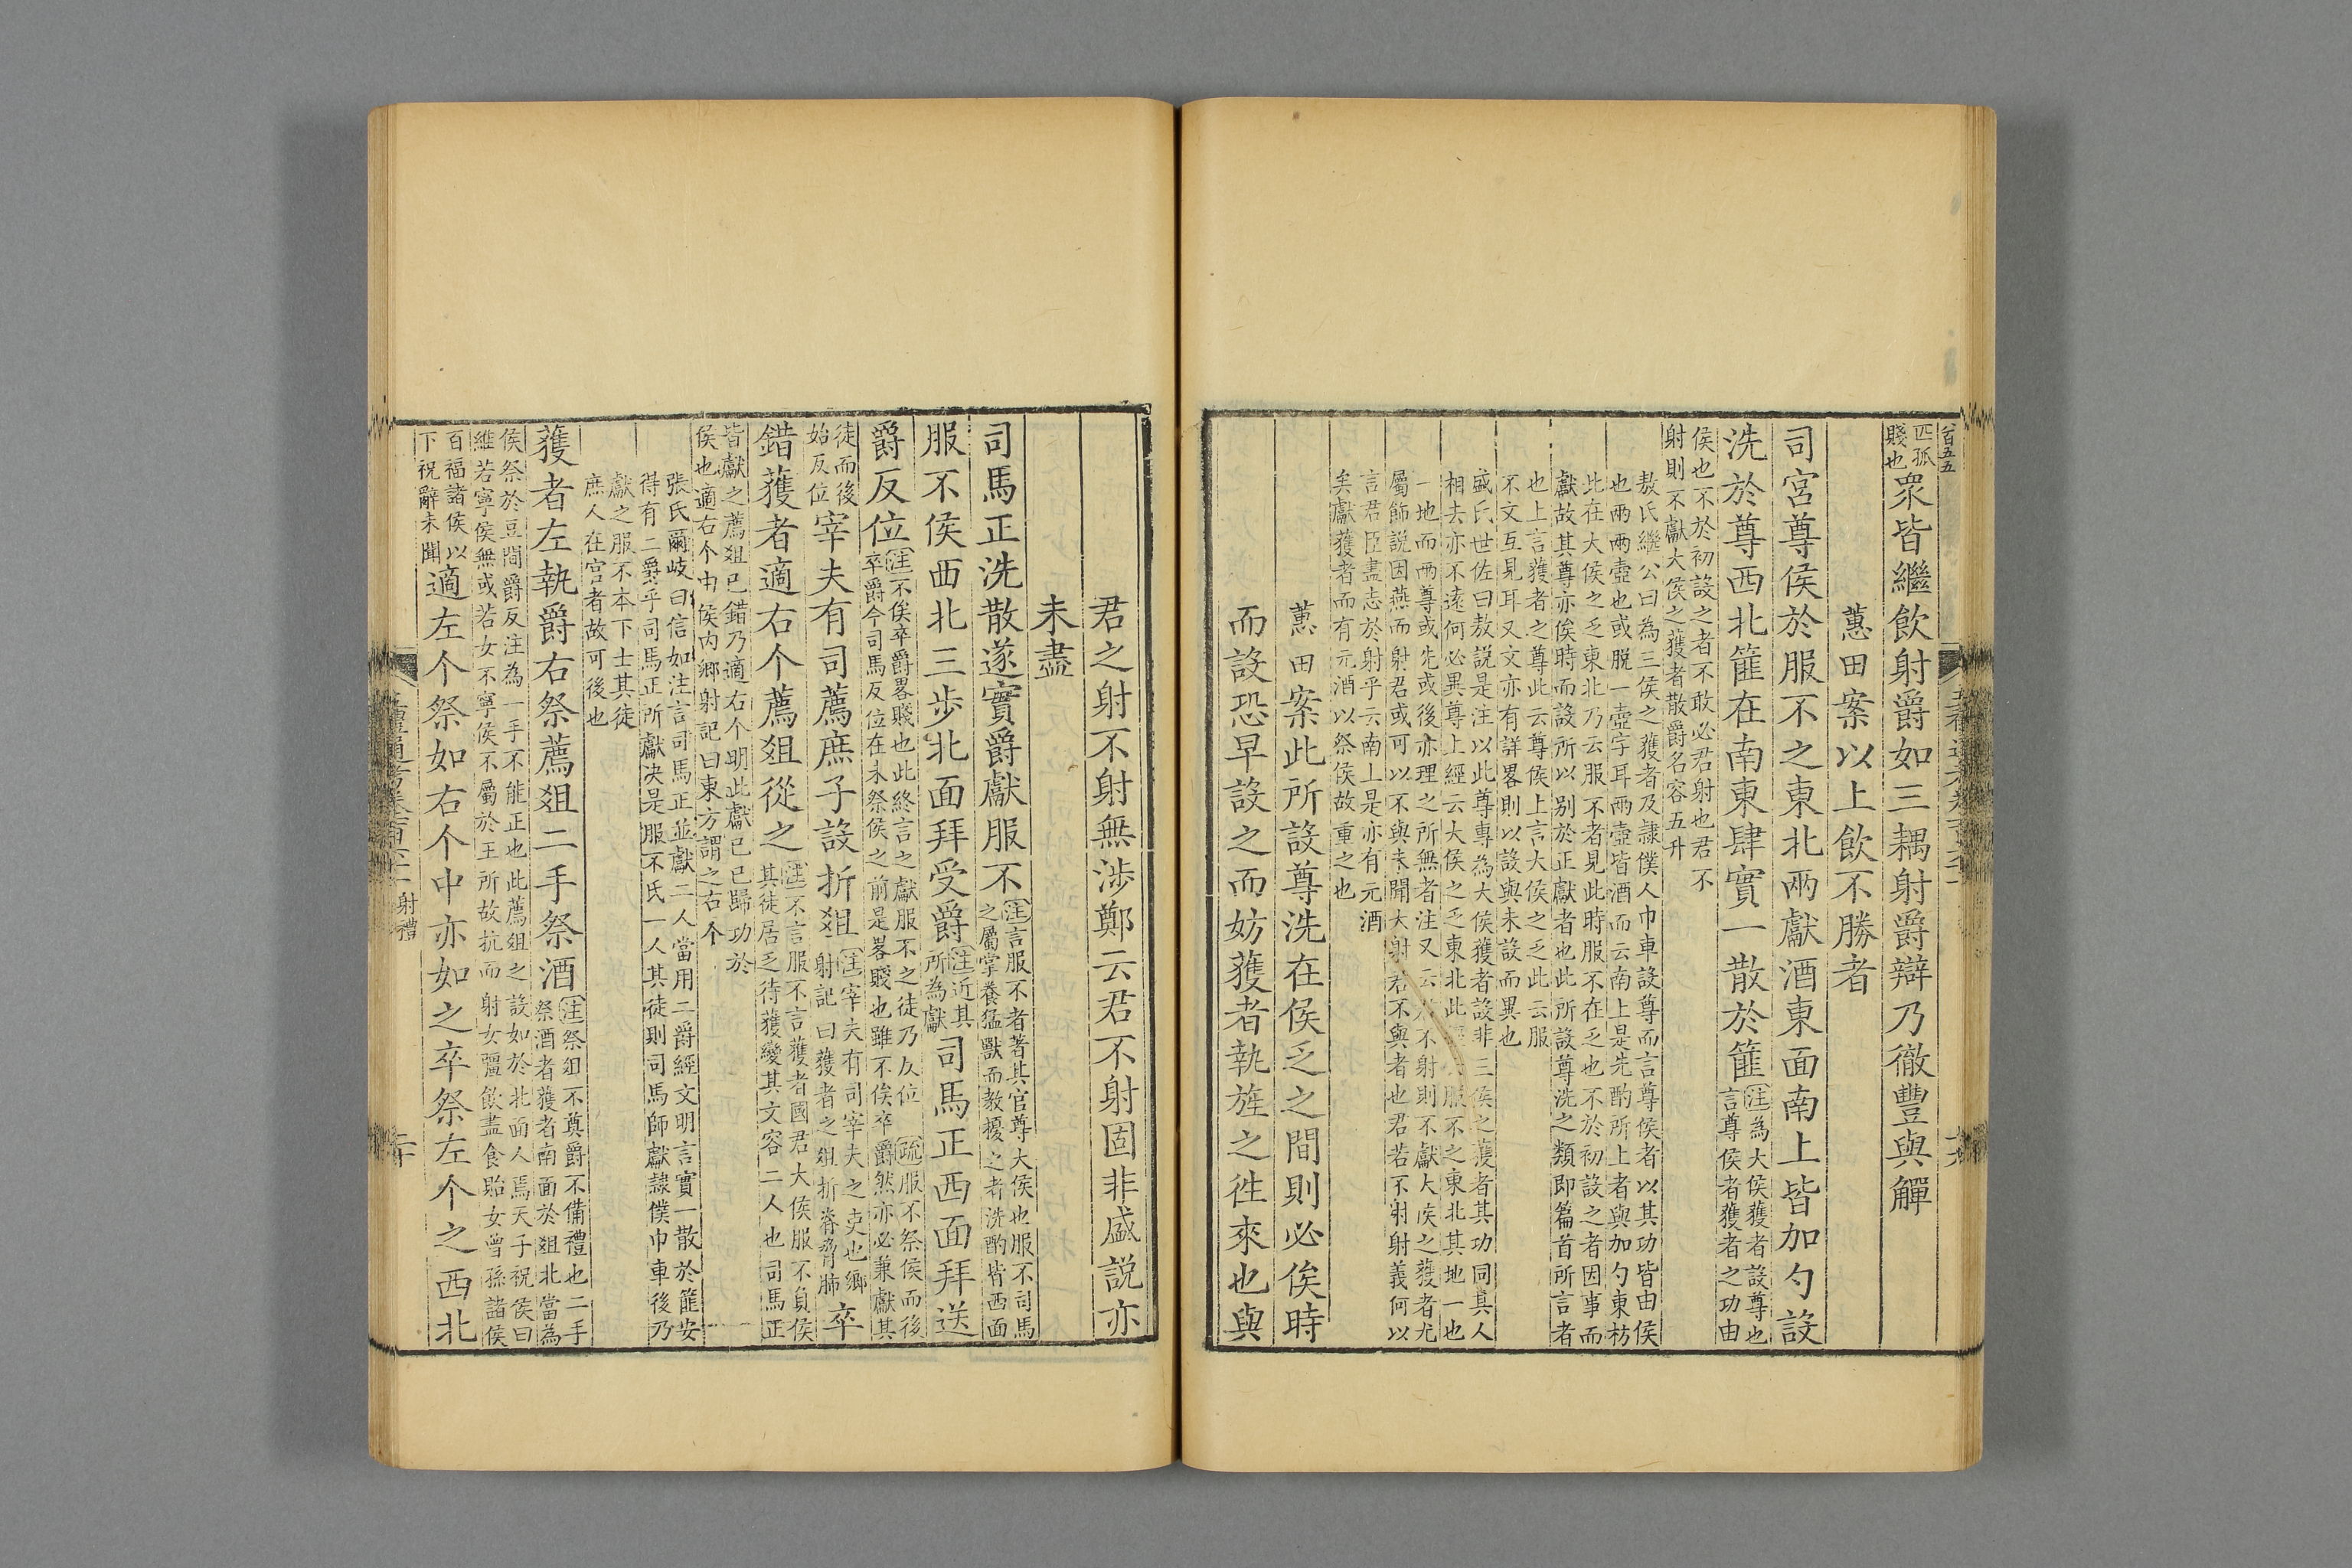 匹孤
賤也
衆皆繼飲射爵如三耦射爵辯乃徹豐與觶
蕙田案以上飲不勝者
司宮尊侯於服不之東北兩獻酒東面南上皆加勺設
洗於尊西北篚在南東肆實一散於篚
注為大侯獲者設尊也
言尊侯者獲者之功由
侯也不於初設之者不敢必君射也君不
射則不獻大侯之獲者散爵名容五升
敖氏繼公曰為三侯之獲者及隷僕人巾車設尊而言尊侯者以其功皆由侯
也兩兩壺也或脫一壺字耳兩壺皆酒而云南上是先酌所上者與加勺東枋
此在大侯之乏東北乃云服不者見此時服不在乏也不於初設之者因事而
獻故其尊亦俟時而設所以别於正獻者也此所設尊洗之類即篇首所言者
也上言獲者之尊此云尊侯上言大侯之乏此云服
不文互見耳又文亦有詳畧則以設與未設而異也
盛氏世佐曰敖說是注以此尊專為大侯獲者設非三侯之獲者其功同其人
相去亦不遠何必異尊上經云大侯之乏東北此服不之東北其地一也
一地而兩尊或先或後亦理之所無者注又云不射則不獻大侯之獲者尤
屬飾說因燕而射君或可以不與未聞大射君不與者也君若不射射義何以
言君臣盡志於射乎云南上是亦有元酒
矣獻獲者而有元酒以祭侯故重之也
蕙田案此所設尊洗在侯乏之間則必俟時
而設恐早設之而妨獲者執旌之徃來也與
君之射不射無涉鄭云君不射固非盛說亦
未盡
司馬正洗散遂實爵獻服不
注言服不者著其官尊大侯也服不司馬
之屬掌養猛獸而教擾之者洗酌皆西面
服不侯西北三步北面拜受爵
注近其
所為獻
司馬正西面拜送
爵反位
注不俟卒爵畧賤也此終言之獻服不之徒乃反位 疏服不祭侯而後
卒爵今司馬反位在未祭侯之前是畧賤也雖不俟卒爵然亦必兼獻其
徒而後
始反位
宰夫有司薦庶子設折俎
注宰夫有司宰夫之吏也鄉
射記曰獲者之俎折脊脅肺
卒
錯獲者適右个薦俎從之
注不言服不言獲者國君大侯服不負侯
其徒居乏待獲變其文容二人也司馬正
皆獻之薦俎已錯乃適右个明此獻已已歸功於
侯也適右个由侯内鄉射記曰東方謂之右个
張氏爾岐曰信如注言司馬正並獻二人當用二爵經文明言實一散於篚安
得有二爵乎司馬正所獻决是服不氏一人其徒則司馬師獻隷僕巾車後乃
獻之服不本下士其徒
庶人在官者故可後也
獲者左執爵右祭薦俎二手祭酒
注祭俎不奠爵不備禮也二手
祭酒者獲者南面於俎北當為
侯祭於豆間爵反注為一手不能正也此薦俎之設如於北面人焉天子祝侯曰
維若寧侯無或若女不寧侯不屬於王所故抗而射女彊飲盡食貽女曾孫諸侯
百福諸侯以
下祝辭未聞
適左个祭如右个中亦如之卒祭左个之西北
射禮